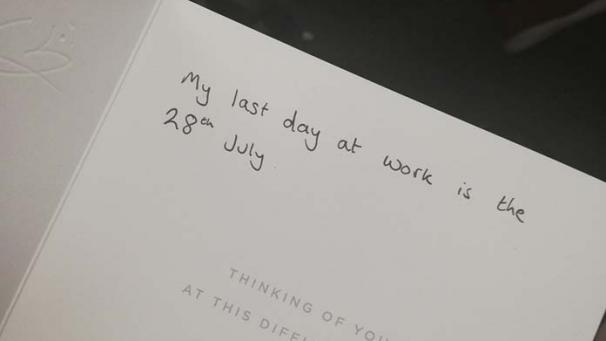 My last day at work is the
28th July
THINKING OF YOU
AT THIS